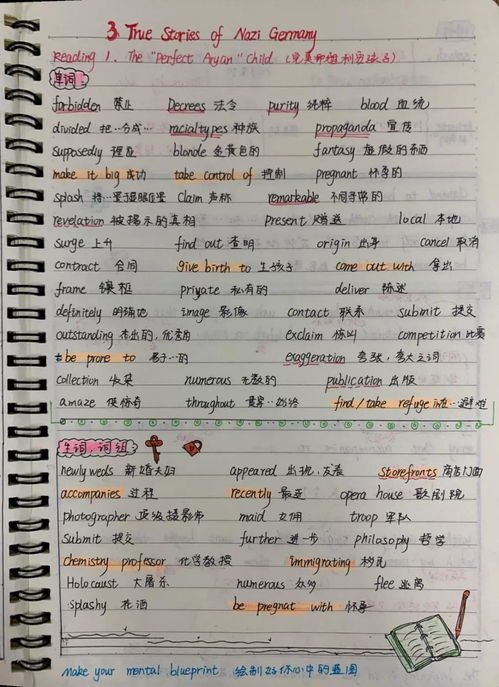 3. True Stories of Nazi Germany
Reading 1. The "Perfect Aryan" Child (完美雅利安孩子)
单词
forbidden 禁止 Decrees 法令 purity 纯粹 blood 血统
divided 把…分成… racialtypes 种族 propaganda 宣传
supposedly 理应 blonde 金黄色的 fantasy 虚假的东西
make it big 成功 take control of 控制 pregnant 怀孕的
splash claim 声称 remarkable 不同寻常的
revelation 被揭示的真相 present 赠送 local 本地
surge 上升 find out 查明 origin 出身 cancel 取消
contract 合同 give birth to 生孩子 come out with 拿出
frame 镜框 private 私有的 deliver 陈述
definitely 明确地 image 影像 contact 联系 submit 提交
outstanding 杰出的, 优秀的 exclaim 惊叫 competition 比赛
be prone to 易于…的 exaggeration 夸张, 夸大之词
collection 收菜 numerous 无数的 publication 出版
amaze 使惊奇 throughout find/take refuge in 在…避难
生词 词组
newly weds 新婚夫妇 appeared 出现, storefronts 商店门面
accompanies 过程 recently 最近 opera house 歌剧院
photographer 顶级摄影师 maid 女佣 troop 军队
submit 提交 further 进一步 philosophy 哲学
chemistry professor 化学教授 immigrating 移民
Holocaust 大屠杀 numerous 众多 flee 逃离
splashy be pregnat with 怀孕
make your mental blueprint 绘制好你心中的蓝图